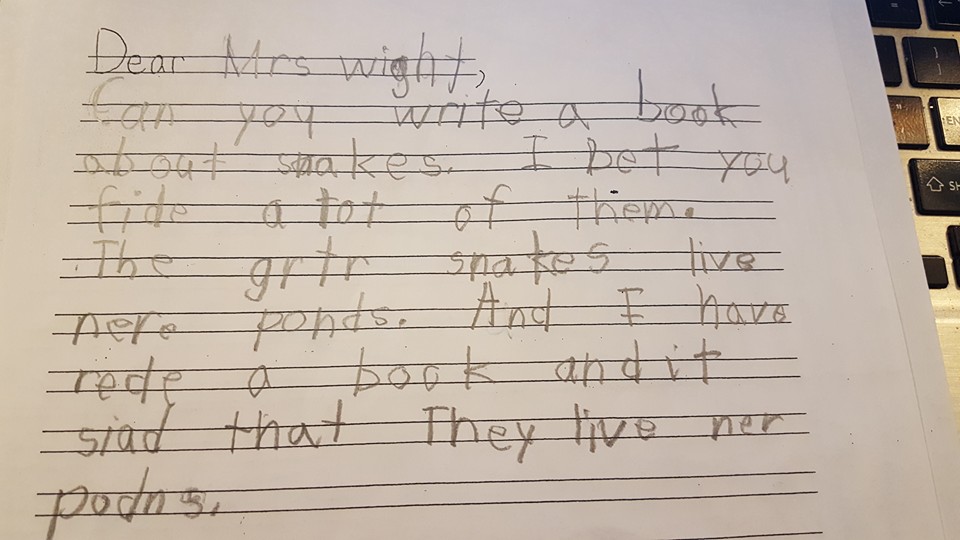 Dear Mrs wight,
Can you write a book
about snakes. I bet you
fide a lot of them.
The grtr snakes live
nere ponds. And I have
rede a book and it
siad that They live ner
podns.